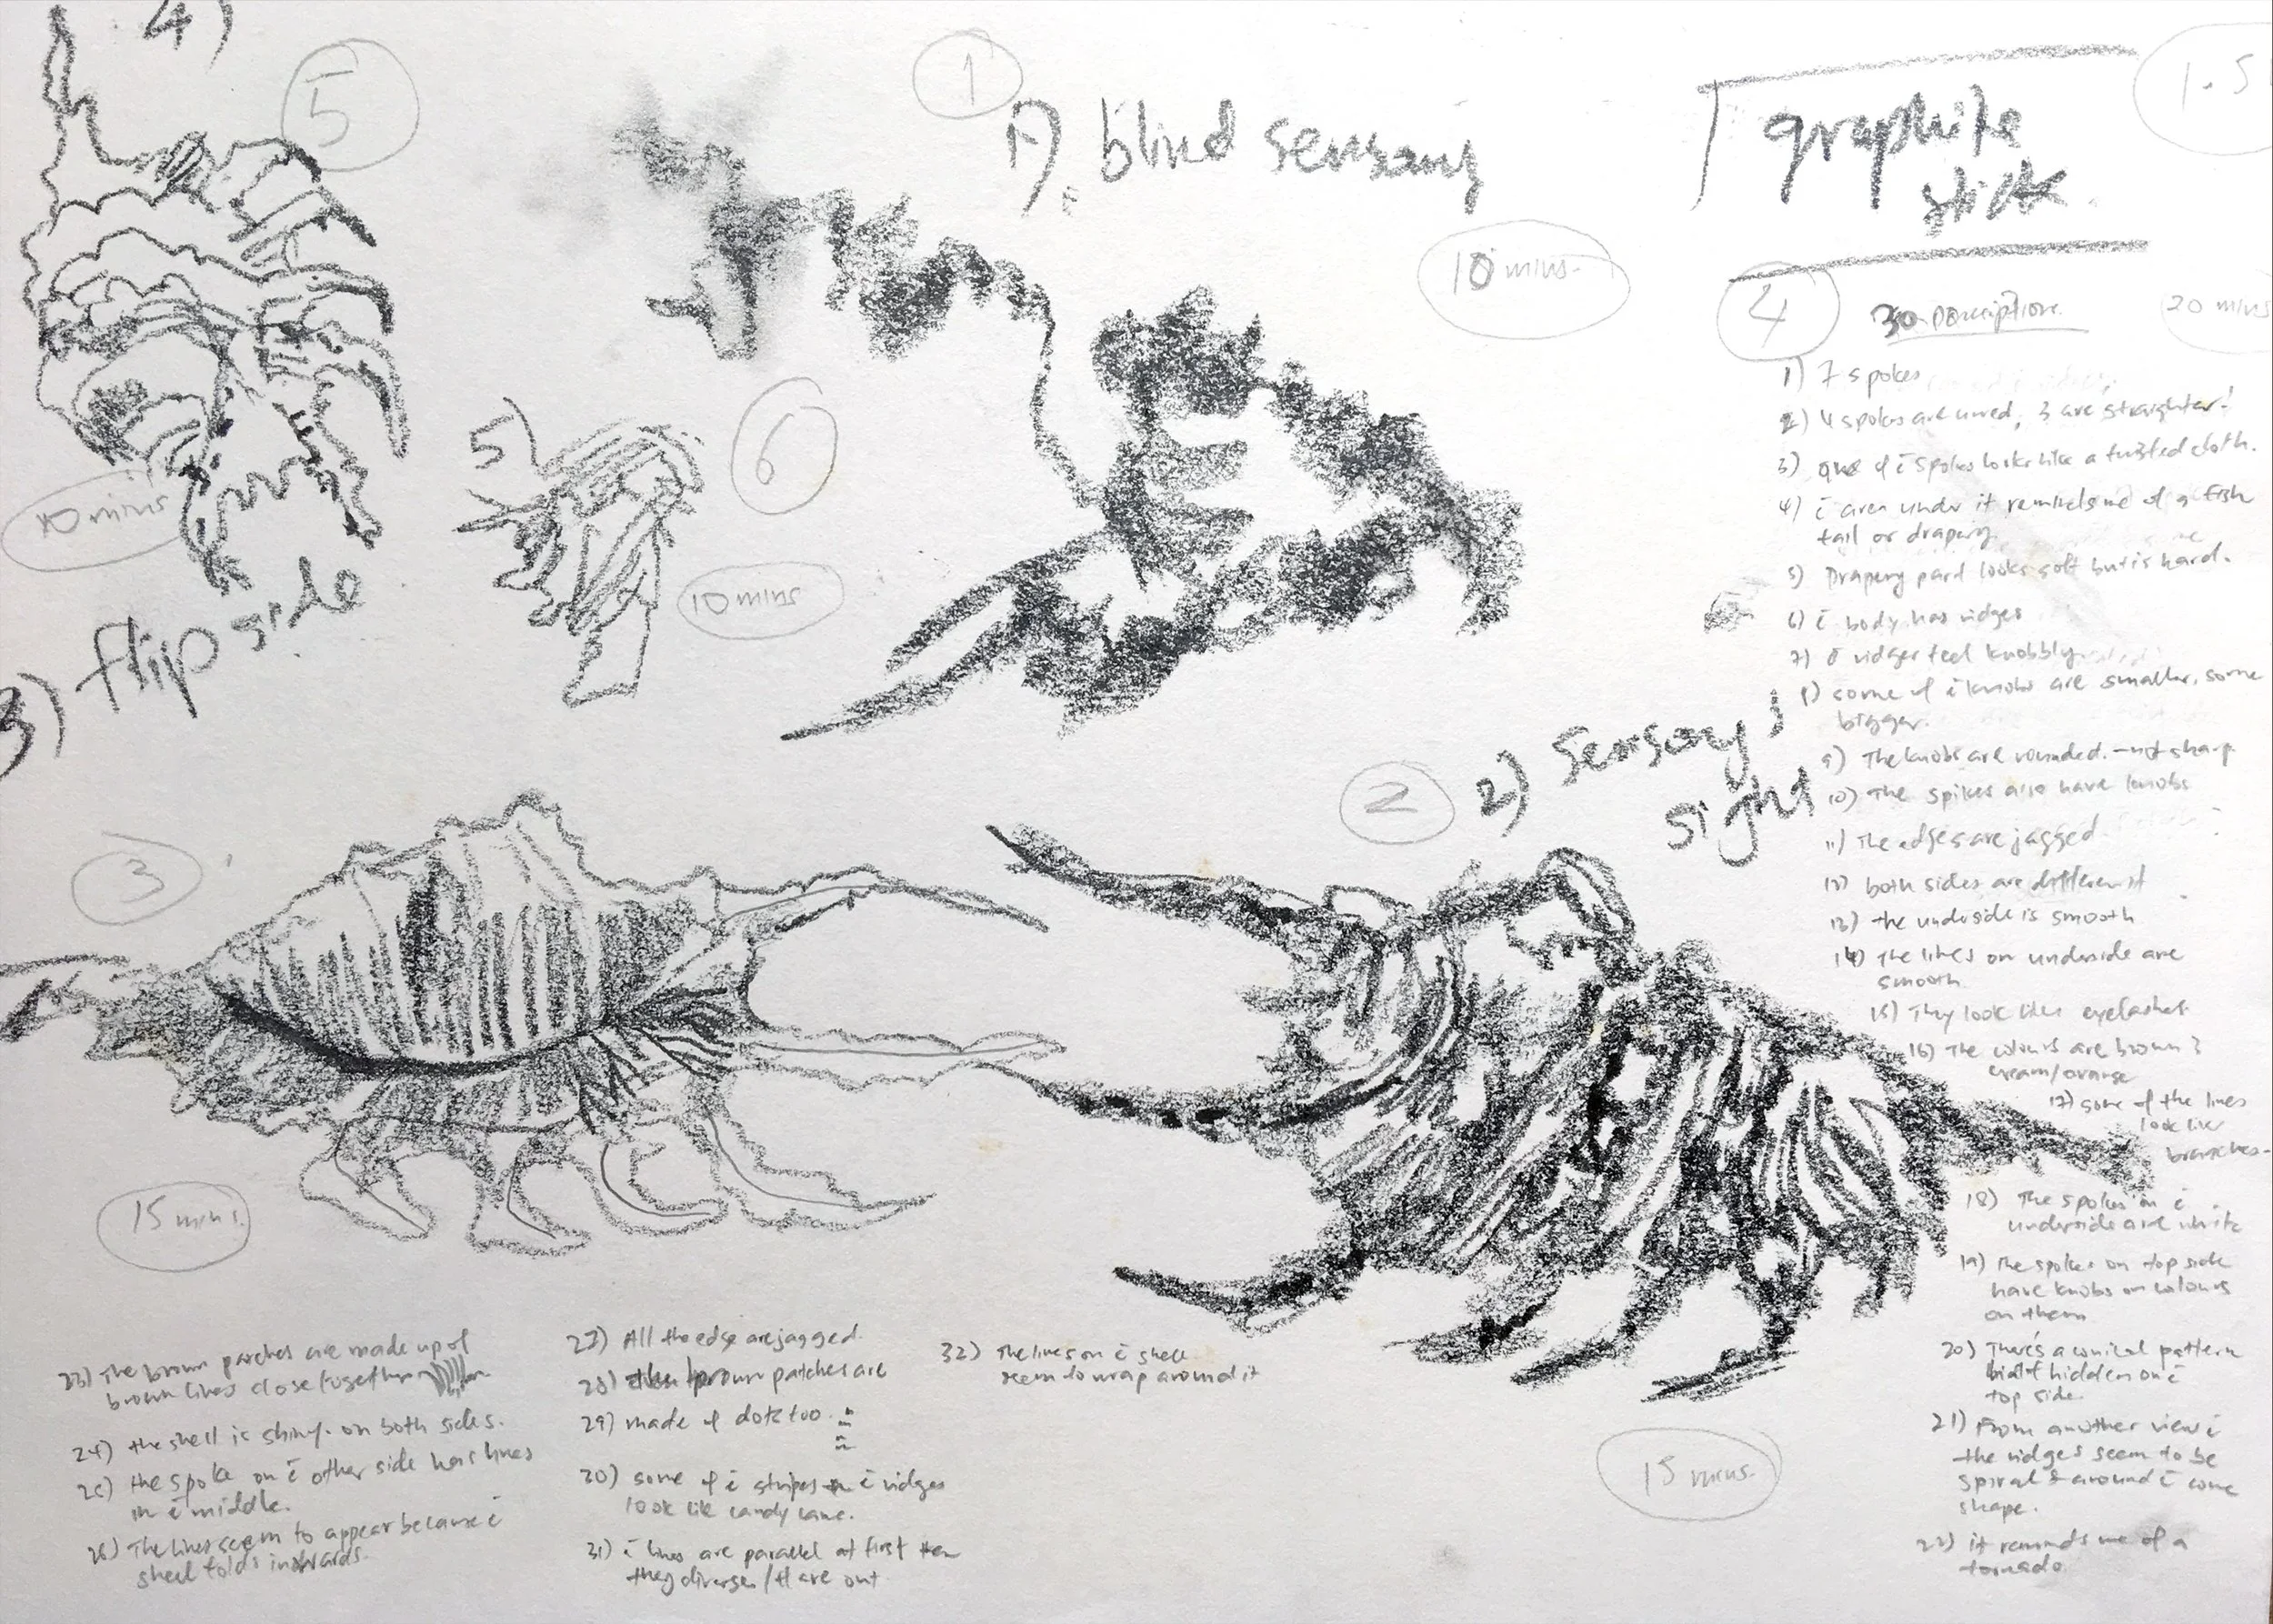 4)
5
1
1), blind sensory
10 mins.
graphite
stick.
1.5
4
30 Description.
20 mins
1) 7 spokes
2) 4 spokes are curved, 3 are straighter!
3) one of i spokes looks like a twisted cloth.
4) i area under it reminds me of a fish
tail or drapery
5) Drapery part looks soft but is hard.
6) i body has ridges
7) ridges feel knobbly
8) some of i knobs are smaller, some
bigger.
9) The knobs are rounded. - not sharp
10) The spikes also have knobs
11) The edges are jagged
12) both sides are different
13) the underside is smooth
14) The lines on underside are
smooth
15) They look like eyelashes.
16) The colours are brown &
cream/orange
17) some of the lines
look like
branches-
18) The spokes on i
underside are white
19) The spokes on top side
have knobs on colours
on them
20) There's a conical pattern
hidden on i
top side.
21) From another view i
the ridges seem to be
spiral & around i cone
shape.
22) it reminds me of a
tornado
10 mins
3) flip side
5)
6
10 mins
2
2) Sensory &
sight
15 mins.
3
15 mins.
23) The brown patches are made up of
brown lines close together
24) the shell is shiny. on both sides.
25) the spoke on i other side has lines
in i middle.
26) The lines seem to appear because i
shell folds inwards.
27) All the edge are jagged.
28) brown patches are
29) made of dots too.
30) some of i stripes i ridges
look like candy cane.
31) i lines are parallel at first then
they diverge / flare out
32) The lines on i shell
seem to wrap around it